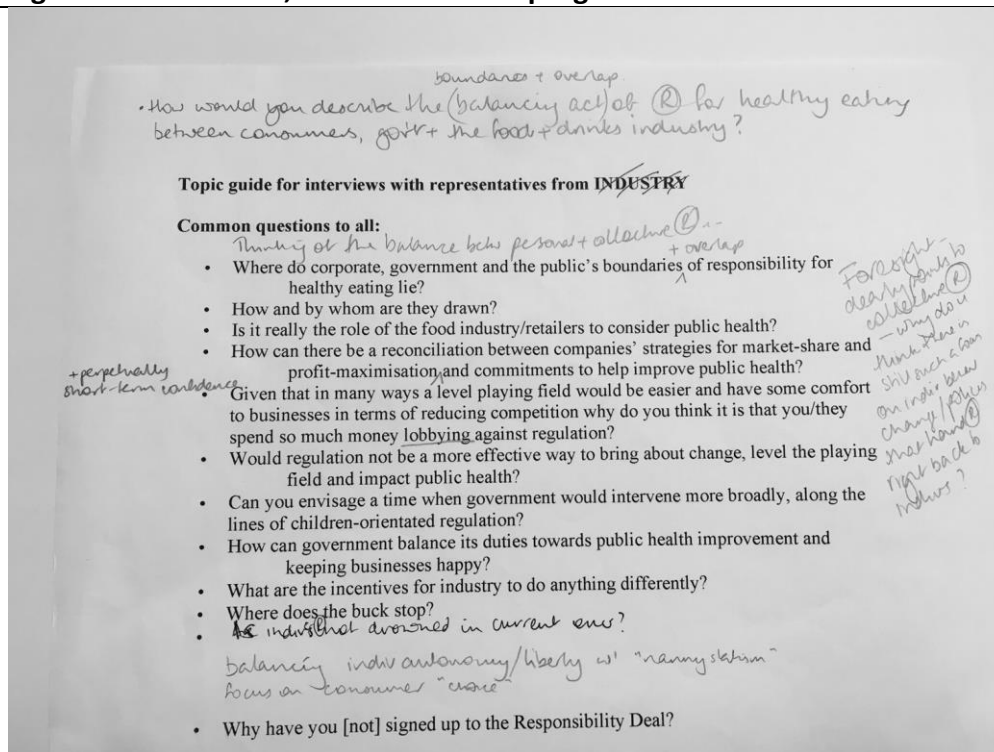 boundaries + overlap
• How would you describe the (balancing act) of Ⓡ for healthy eating
between consumers, govt + the food + drinks industry?
Topic guide for interviews with representatives from INDUSTRY
Common questions to all:
Thinking of the balance betw personal + collective Ⓡ...
+ overlap
• Where do corporate, government and the public's boundaries of responsibility for
healthy eating lie?
• How and by whom are they drawn?
• Is it really the role of the food industry/retailers to consider public health?
• How can there be a reconciliation between companies' strategies for market-share and
profit-maximisation and commitments to help improve public health?
+perpetually
short-term confidence
• Given that in many ways a level playing field would be easier and have some comfort
to businesses in terms of reducing competition why do you think it is that you/they
spend so much money lobbying against regulation?
• Would regulation not be a more effective way to bring about change, level the playing
field and impact public health?
• Can you envisage a time when government would intervene more broadly, along the
lines of children-orientated regulation?
• How can government balance its duties towards public health improvement and
keeping businesses happy?
• What are the incentives for industry to do anything differently?
• Where does the buck stop?
• indivs not drowned in current env?
balancing indiv autonomy/liberty w' "nanny statism"
focus on consumer "choice"
• Why have you [not] signed up to the Responsibility Deal?
Foresight –
clearly points to
collective Ⓡ
– why do u
think there is
still such a
on indiv behav
change/policies
that hand Ⓡ
right back to
indivs?